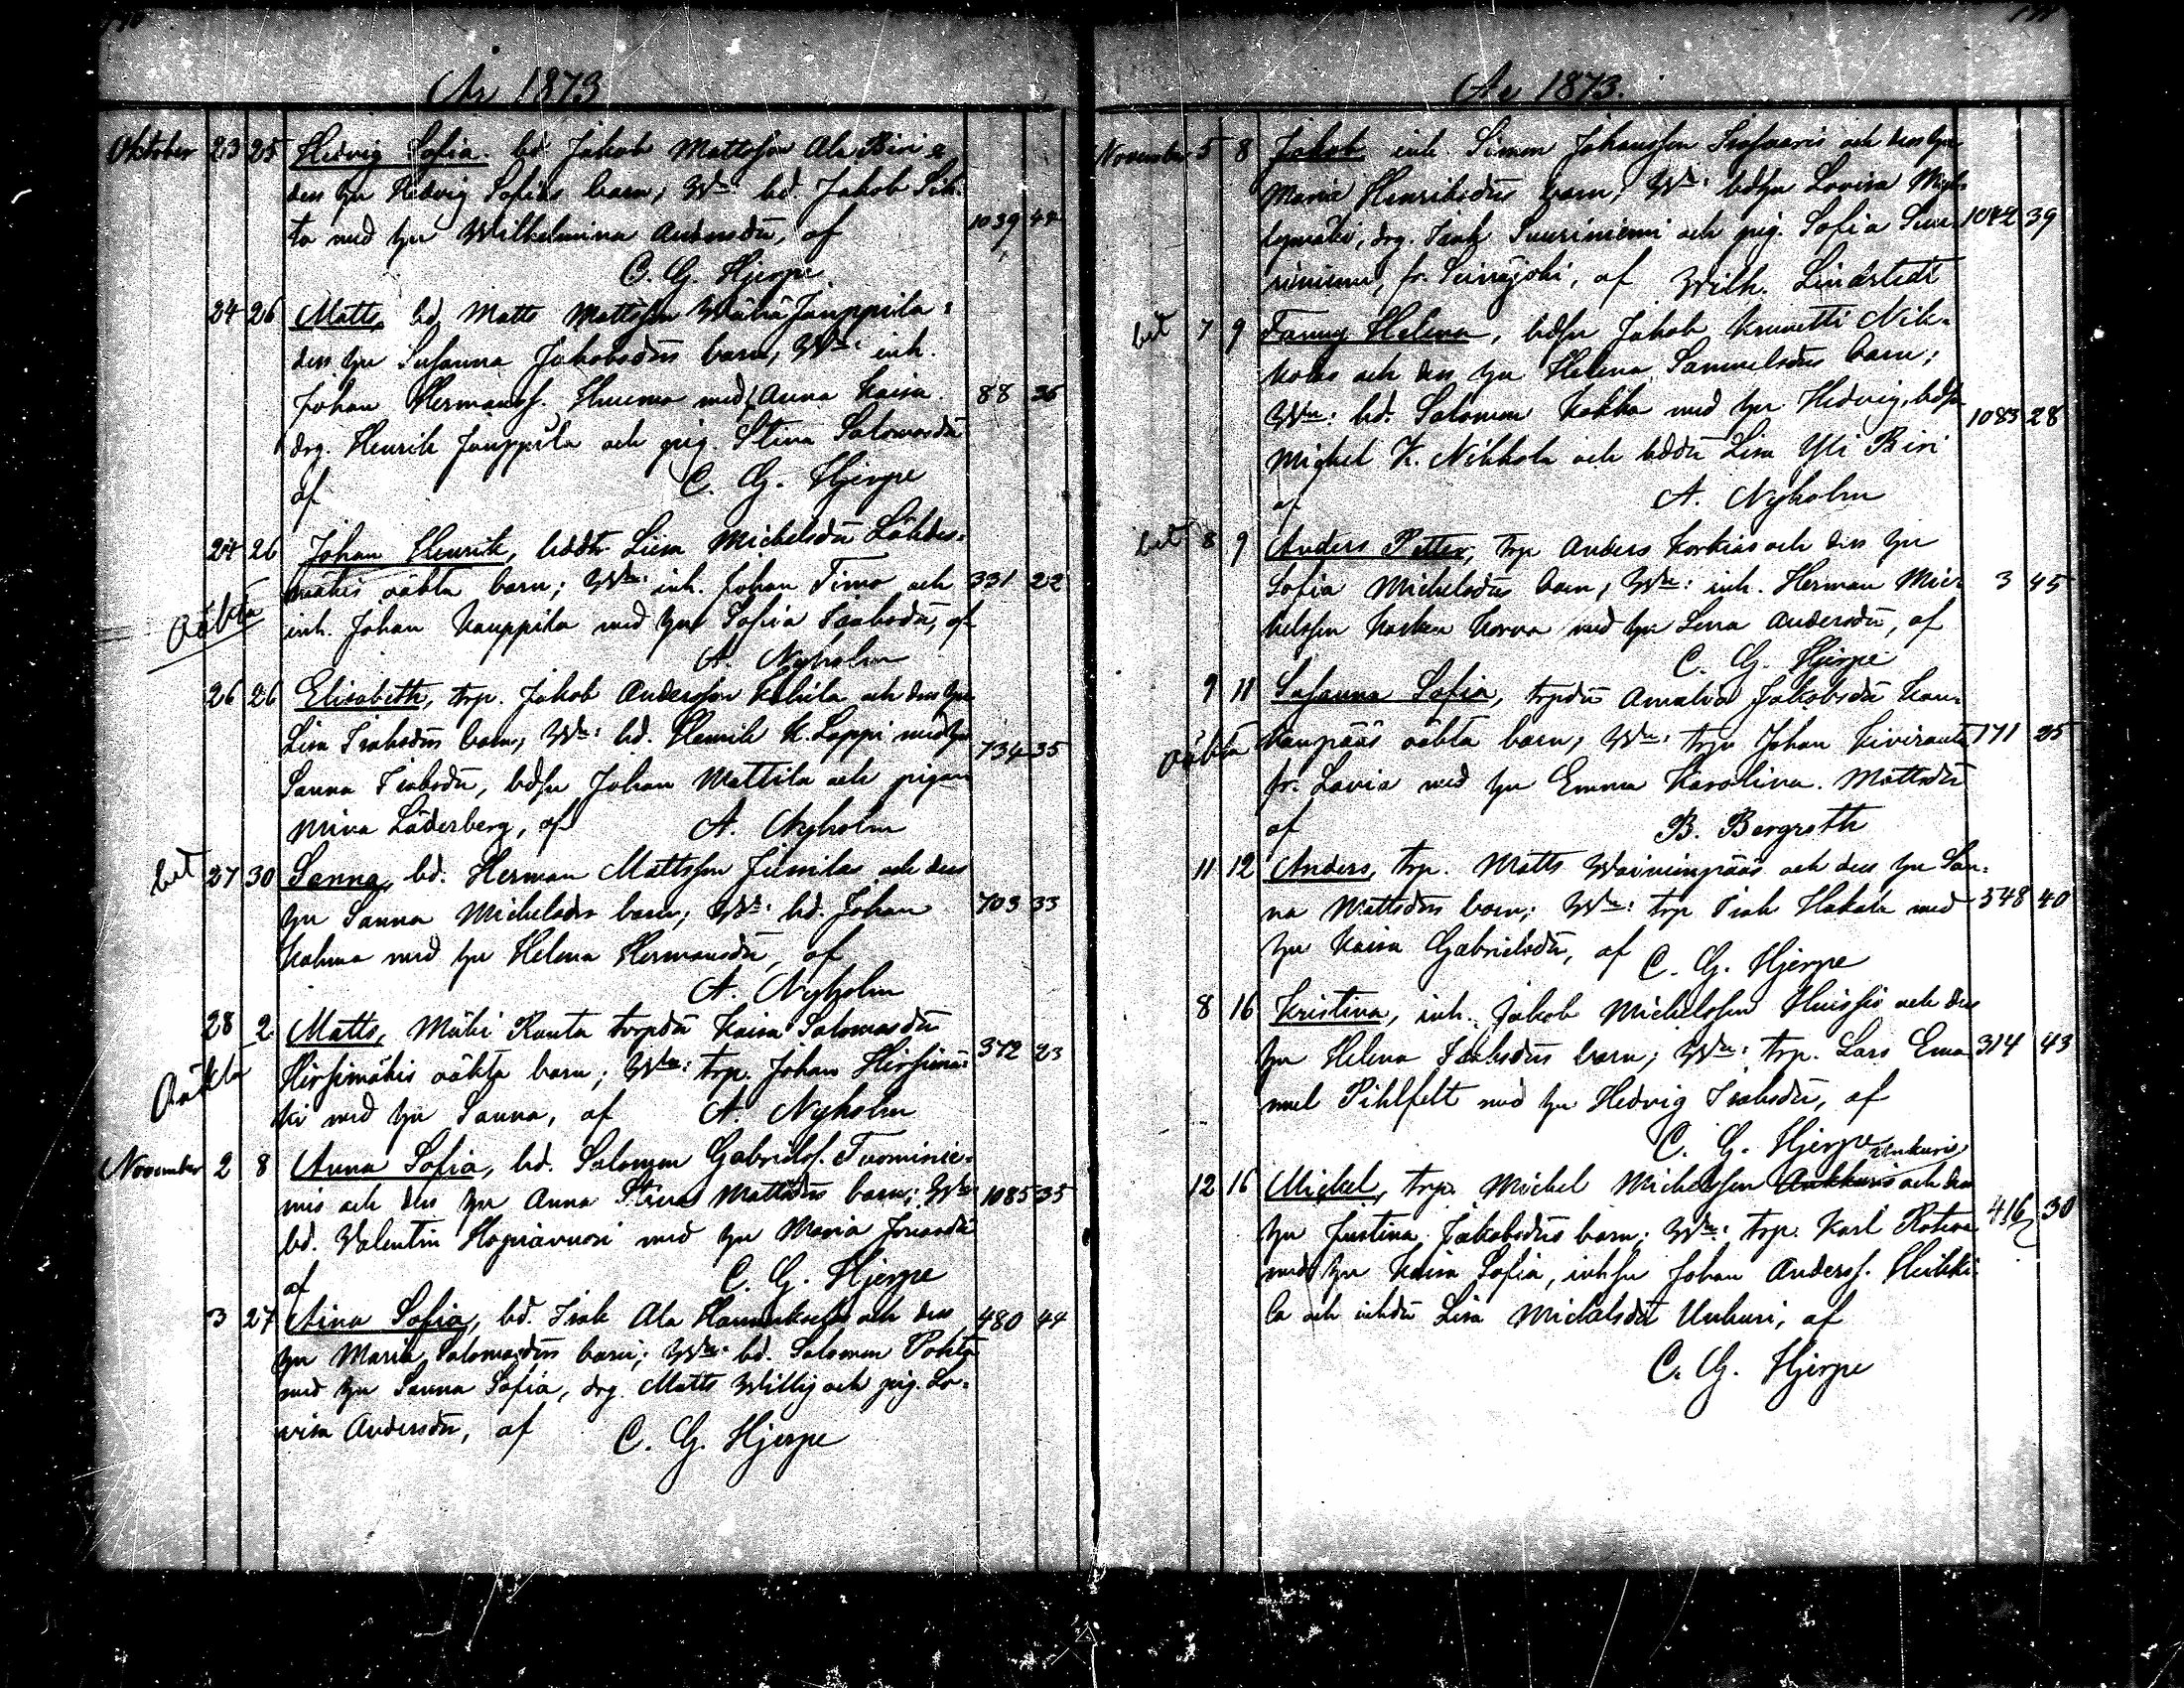 År 1873
Oktober 23 25 Hedvig Sofia. bd. Jakob Mattsson Ala Biri o
dess hu Hedvig Sofias barn; Wn bd. Jakob
ta med hu Wilhelmina Andersdr, af 1039 44
C. G. Hjerpe
24 26 Matts, bd Matts Mattsson Wähä Jauppila o
dess hu Susanna Jakobsdrs barn; Wn: inh.
Johan Hermanss. med Anna Kaisa. 88 36
drg. Henrik Jauppila och pig. Stina Salomonsdr
af C. G. Hjerpe
24 26 Johan Henrik, bddtr Lisa Michelsdr Lähdes-
mäkis oäkta barn; Wn: inh. Johan Timo och 331 22
oäkta
inh. Johan Kauppila med hu Sofia Isaksdr, af
A. Nyholm
26 26 Elisabeth, trp. Jakob Andersson och dess hu
Lisa Isaksdrs barn; Wn: bd. Henrik K. Lappi med hu 734 35
Sanna Isaksdr, bdsn Johan Mattila och pigan
Mina Söderberg, af A. Nyholm
bet 27 30 Sanna, bd. Herman Mattsson Jemilas och dess
hu Sanna Michelsdrs barn; Wn: bd. Johan 703 33
Kahma med hu Helena Hermansdr, af
A. Nyholm
28 2 Matts, Mäki Ranta torpdr Kaisa Salomonsdr
Hirsimäkis oäkta barn; Wn: trp. Johan Hirsimä- 372 23
oäkta
ki med hu Sanna, af A. Nyholm
November 2 8 Anna Sofia, bd. Salomon Gabrielss. Tuominie-
mis och dess hu Anna Stina Mattsdrs barn; Wn: 1085 35
bd. Valentin Hapiavuori med hu Maria Jonasdr
af C. G. Hjerpe
3 27 Aina Sofia, bd. Isak Ala och dess 480 44
hu Maria Salomonsdrs barn; Wn: bd. Salomon Pohto
med hu Sanna Sofia, drg. Matts Willig och pig. Lo-
visa Andersdr, af C. G. Hjerpe
År 1873.
November 5 8 Jakob, inh. Simon Johansson och dess hu
Maria Henriksdrs barn; Wn: bdhu Lovisa
drg. Isak Suuriniemi och pig. Sofia Suu- 1072 39
riniemi, fr. Seinäjoki, af Wilh. Lindstedt
bet 7 9 Fanny Helena, bdsn Jakob Krunetti Nik-
kolas och dess hu Helena Samuelsdrs barn;
Wn: bd. Salomon Kokko med hu Hedvig, bdsn 1083 28
Michel K. Nikkola och bddtr Lisa Yli Biri
af A. Nyholm
bet 8 9 Anders Petter, trp Anders Korkias och dess hu
Sofia Michelsdrs barn; Wn: inh. Herman Mic- 3 45
helsson Korva med hu Lena Andersdr, af
C. G. Hjerpe
9 11 Susanna Sofia, trpdtr Amalia Jakobsdr Kan-
kanpääs oäkta barn; Wn: trp Johan Kiviranta 171 25
oäkta
fr. Lavia med hu Emma Karolina Mattsdr
af B. Bergroth
11 12 Anders, trp. Matts Wainionpääs och dess hu San-
na Mattsdrs barn; Wn: trp Isak Hakala med 548 40
hu Kaisa Gabrielsdr, af C. G. Hjerpe
8 16 Kristina, inh. Jakob Michelsson Huissis och dess
hu Helena Isaksdrs barn; Wn: trp. Lars Ema- 314 43
nuel Pihlfelt med hu Hedvig Isaksdr, af
C. G. Hjerpe
Unkuris
12 16 Michel, trp. Michel Michelsson och dess
hu Justina Jakobsdrs barn; Wn: trp. Karl 416 30
med hu Kaisa Sofia, inhsn Johan Anderss. Heikki-
la och inhdtr Lisa Michelsdr Unkuri, af
C. G. Hjerpe